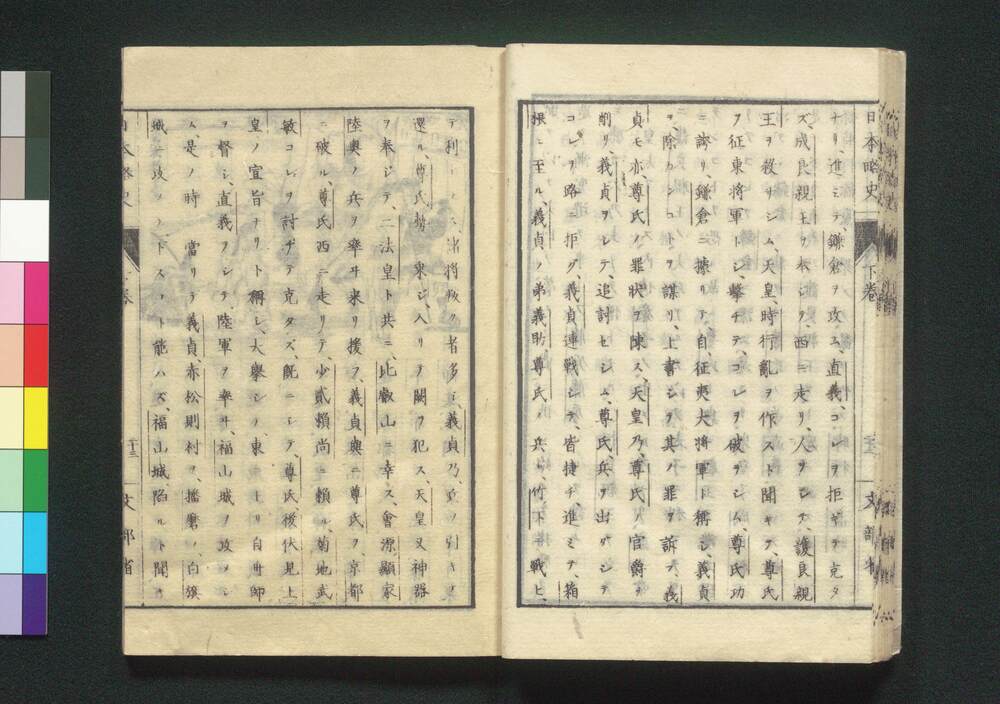 日本略史 下卷 文部省
ナリ、進ミテ、鎌倉ヲ攻ム、直義、コレヲ拒ギテ、克タ
ズ、成良親王ヲ奉ジテ、西ニ走リ、人ヲシテ、護良親
王ヲ殺サシム、天皇、時行亂ヲ作スト聞キテ、尊氏
ヲ征東將軍トシ、撃チテ、コレヲ破ラシム、尊氏功
ニ誇リ、鎌倉ニ據リテ、自、征夷大將軍ト稱シ、義貞
ヲ除カンコトヲ謀リ、上書シテ、其ノ罪ヲ訴フ、義
貞モ亦、尊氏ノ罪狀ヲ陳ス、天皇乃、尊氏ノ官爵ヲ
削リ、義貞ヲシテ、追討セシム、尊氏、兵ヲ出ダシテ
コレヲ路ニ拒グ、義貞連戰シテ、皆捷チ、進ミテ、箱
根ニ至ル、義貞ノ弟義助、尊氏ノ兵ト、竹下ニ戰ヒ、
テ利 諸將叛ク者多シ、義貞乃、 引キテ
還ル、尊氏、勢ニ乘ジ、入リテ闕ヲ犯ス、天皇又神器
ヲ奉ジテ、二法皇ト共ニ、比叡山ニ幸ス、會源顯家
陸奧ノ兵ヲ率ヰ來リ援フ、義貞與ニ尊氏ヲ、京都
ニ破ル、尊氏西ニ走リテ、少貳賴尚ニ賴ル、菊地武
敏コレヲ討チテ克タズ、既ニシテ、尊氏、後伏見上
皇ノ宣旨ナリト稱シ、大擧シテ東上シ、自舟師
ヲ督シ、直義ヲシテ、陸軍ヲ率ヰ、福山城ヲ攻メシ
ム、是ノ時ニ當リテ、義貞、赤松則村ヲ、播磨ノ、白旗
城ニ攻メテ下スコト能ハズ、福山城、陷ルト聞キ
日本略史 下卷 十三 文部省